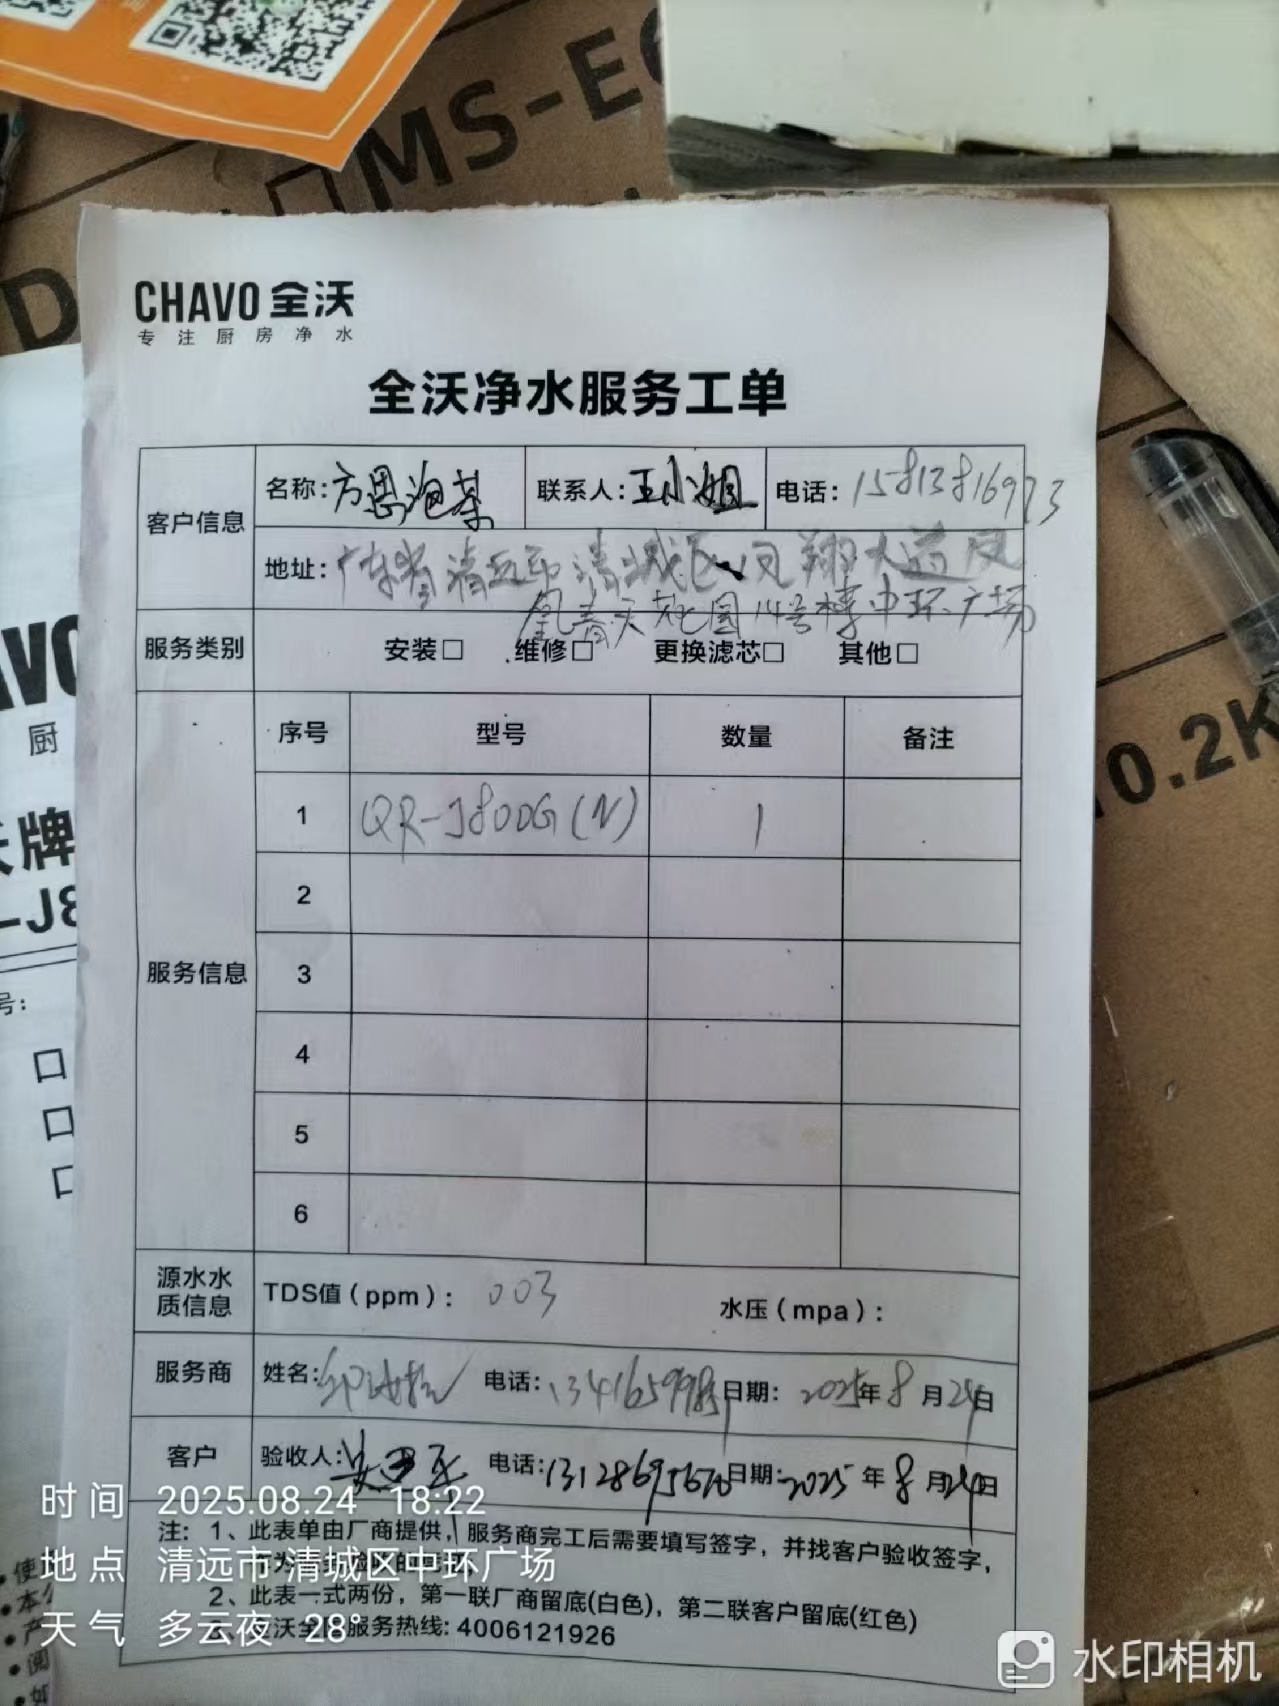 MS-E
D
CHAVO 全沃
专注厨房净水
全沃净水服务工单
客户信息 名称: 方恩泡茶 联系人: 王小姐 电话: 15813816973
地址: 广东省清远市清城区凤翔大道凤
凰春天花园14号楼中环广场
服务类别 安装□ 维修□ 更换滤芯□ 其他□
序号 型号 数量 备注
1 QR-J800G(N) 1
2
服务信息 3
4
5
6
源水水质信息 TDS值(ppm): 003 水压(mpa):
服务商 姓名: 电话: 日期: 2025年8月24日
客户 验收人: 电话: 日期: 2025年8月24日
注: 1、此表单由厂商提供, 服务商完工后需要填写签字, 并找客户验收签字,
2、此表一式两份, 第一联厂商留底(白色), 第二联客户留底(红色)
服务热线: 4006121926
时间 2025.08.24 18:22
地点 清远市·清城区中环广场
天气 多云夜 28°
水印相机
10.2K
厨
牌
-J8
号: